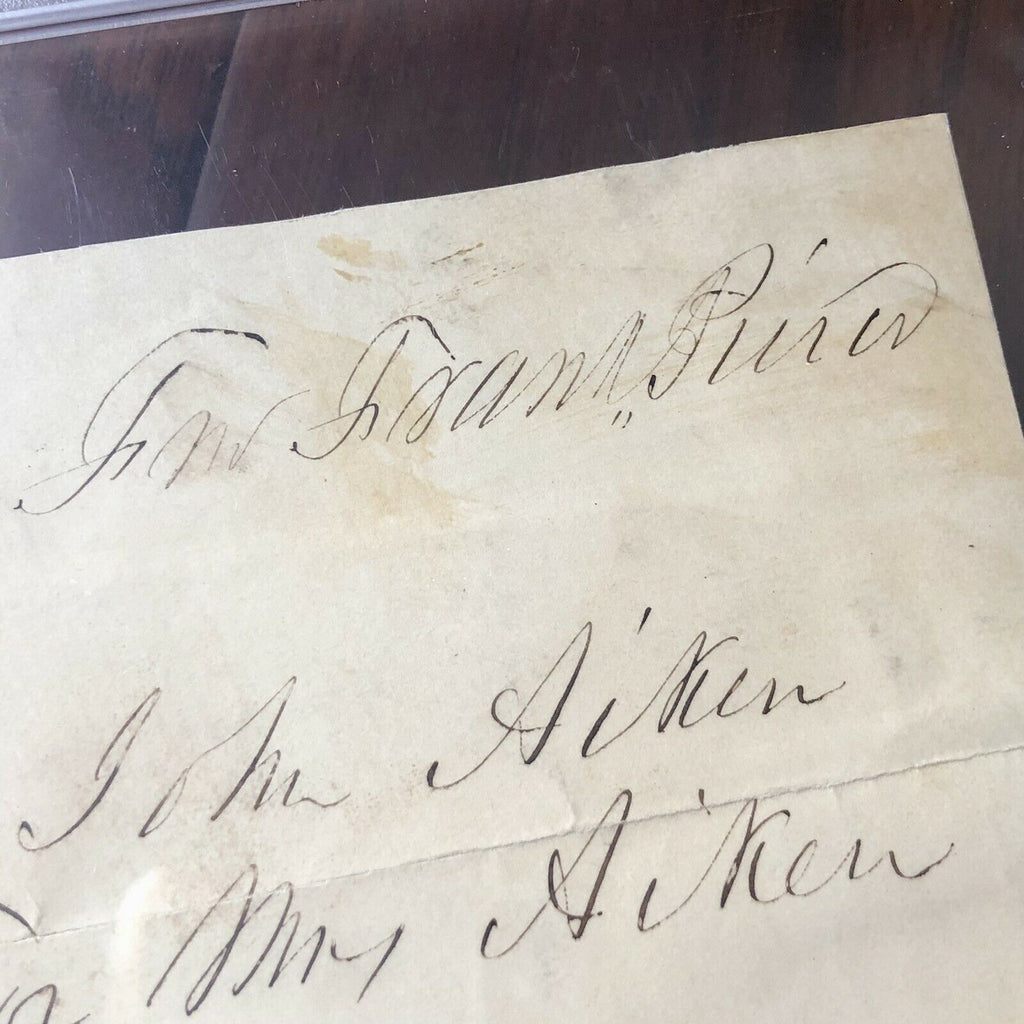 Frank„ Pierce
John Aiken
Mrs Aiken